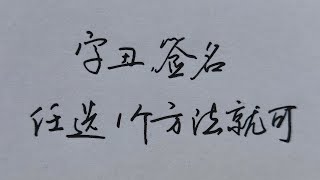 字丑、签名
任选1个方法就可